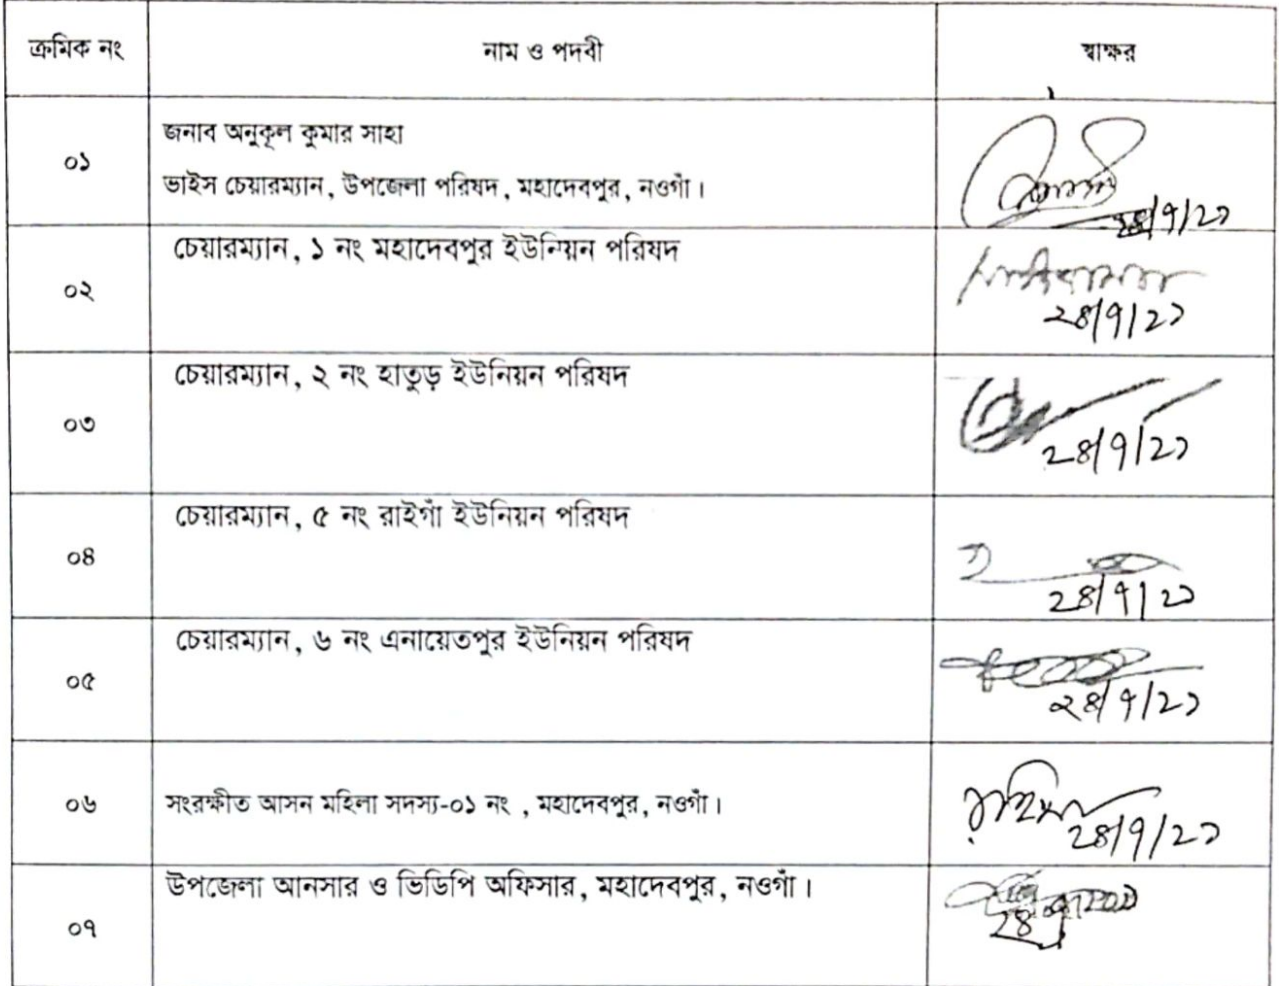 ক্রমিক নং নাম ও পদবী স্বাক্ষর
০১ জনাব অনুকূল কুমার সাহা
ভাইস চেয়ারম্যান, উপজেলা পরিষদ, মহাদেবপুর, নওগাঁ।
২৪/৭/২১
০২ চেয়ারম্যান, ১ নং মহাদেবপুর ইউনিয়ন পরিষদ
২৪/৭/২১
০৩ চেয়ারম্যান, ২ নং হাতুড় ইউনিয়ন পরিষদ
২৪/৭/২১
০৪ চেয়ারম্যান, ৫ নং রাইগাঁ ইউনিয়ন পরিষদ
২৪/৭/২১
০৫ চেয়ারম্যান, ৬ নং এনায়েতপুর ইউনিয়ন পরিষদ
২৪/৭/২১
০৬ সংরক্ষীত আসন মহিলা সদস্য-০১ নং , মহাদেবপুর, নওগাঁ।
২৪/৭/২১
০৭ উপজেলা আনসার ও ভিডিপি অফিসার, মহাদেবপুর, নওগাঁ।